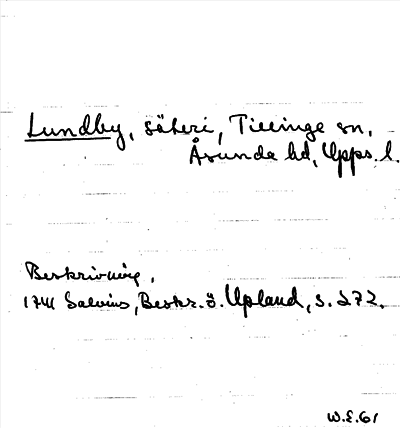 Lundby, säteri, Tillinge sn,
Åsunda hd, Upps. l.
Beskrivning.
1741 Salvius, Beskr. ö. Upland, s. 272.
W.E.61